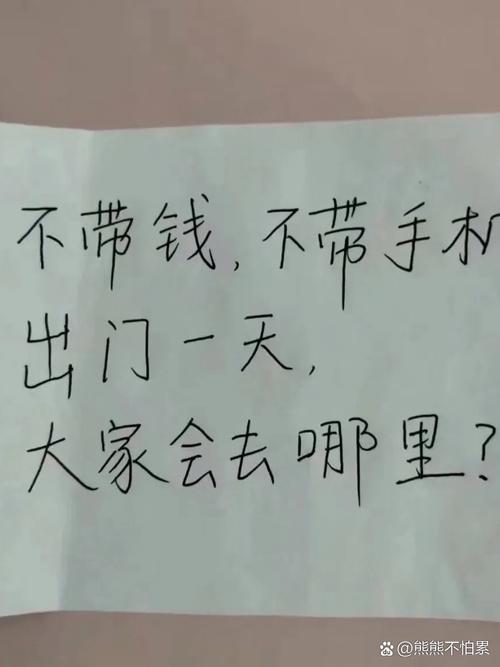 不带钱,不带手机
出门一天,
大家会去哪里?
熊熊不怕累